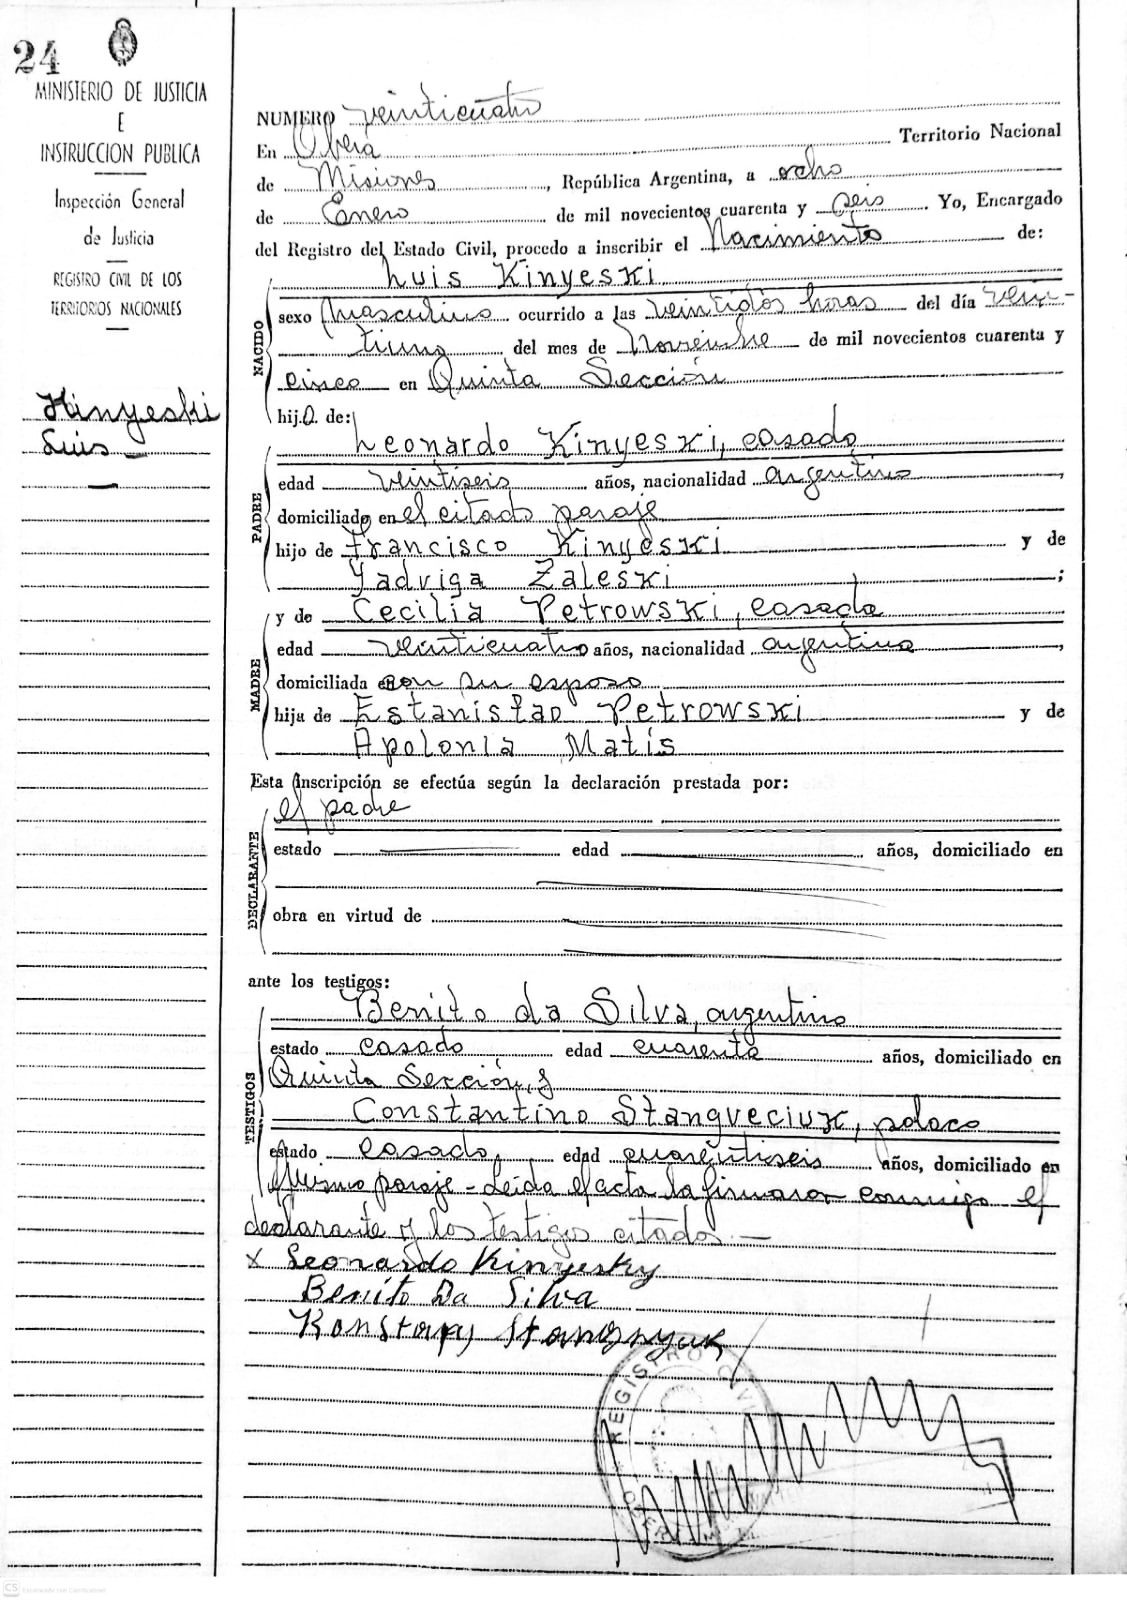 24
MINISTERIO DE JUSTICIA
E
INSTRUCCION PUBLICA
Inspección General
de Justicia
REGISTRO CIVIL DE LOS
TERRITORIOS NACIONALES
Kinyeski
Luis
NUMERO veinticuatro
En Oberá Territorio Nacional
de Misiones, República Argentina, a ocho
de Enero de mil novecientos cuarenta y seis. Yo, Encargado
del Registro del Estado Civil, procedo a inscribir el Nacimiento de:
NACIDO
Luis Kinyeski
sexo Masculino ocurrido a las veintidós horas del día vein-
tiuno del mes de Noviembre de mil novecientos cuarenta y
cinco en Quinta Sección
hijo de:
PADRE
Leonardo Kinyeski, casado
edad veintiseis años, nacionalidad argentino,
domiciliado en el citado paraje
hijo de Francisco Kinyeski y de
Yadviga Zaleski;
MADRE
y de Cecilia Petrowski, casada
edad veinticuatro años, nacionalidad argentina,
domiciliada con su esposo
hija de Estanisłao Petrowski y de
Apolonia Matis
Esta inscripción se efectúa según la declaración prestada por:
DECLARANTE
el padre
estado edad años, domiciliado en
obra en virtud de
ante los testigos:
TESTIGOS
Benito da Silva, argentino
estado casado, edad cuarenta años, domiciliado en
Quinta Sección, y
Constantino Stangveciuk, polaco
estado casado, edad cuarentiseis años, domiciliado en
mismo paraje - Leida el acta la firmaron conmigo el
declarante y los testigos citados.—
x Leonardo Kinyesky
Benito Da Silva
REGISTRO CIVIL
CS Escaneado con CamScanner